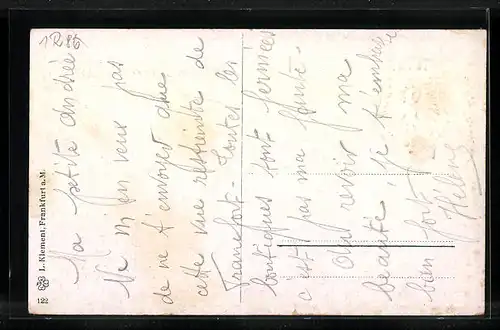 Ma petite Andrée
Ne m'en veux pas
de ne t'envoyer que
cette vue restreinte de
Francfort. Toutes les
boutiques sont fermées
c'est pas ma faute.
Au revoir ma
beauté, je t'embrasse
bien fort,
Hélène
L. Klement, Frankfurt a. M.
122